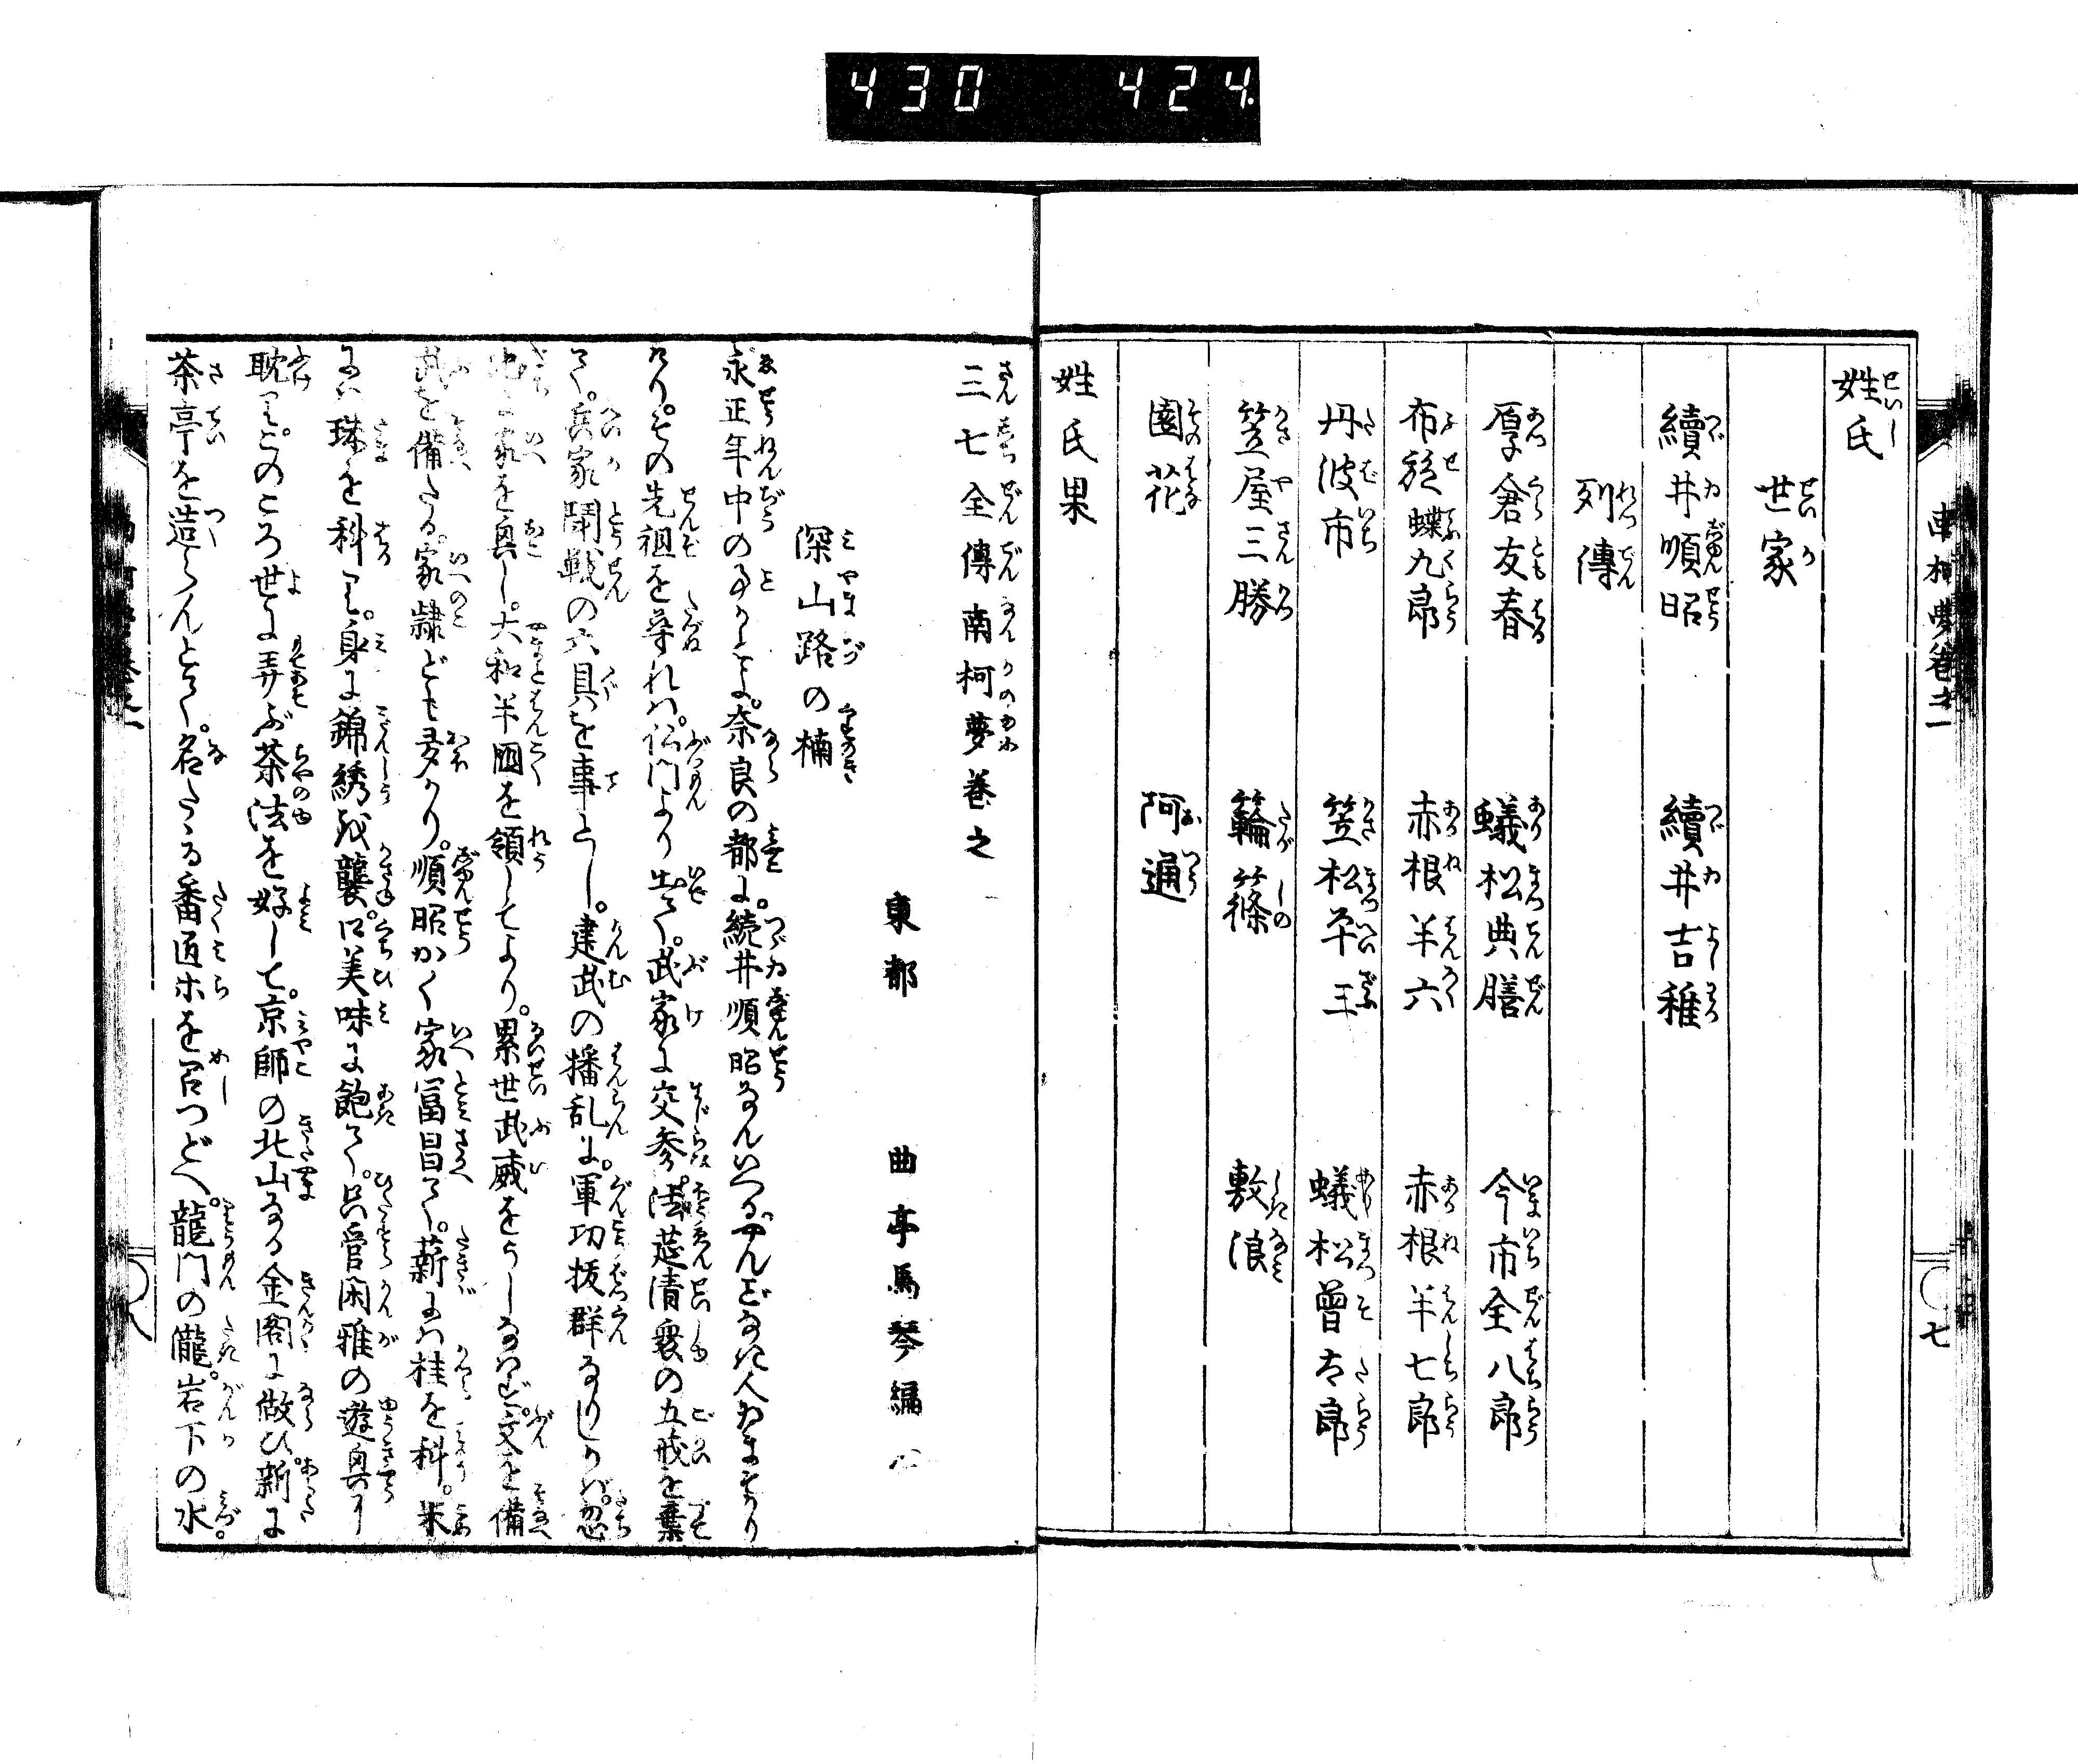 430 424
姓氏
世家
續井順昭 續井吉稚
列傳
厚倉友春 蟻松典膳 今市全八郎
布施蝶九郎 赤根半六 赤根半七郎
丹波市 笠松平三 蟻松曾太郎
笠屋三勝 簵篠 敷浪
園花 阿通
姓氏果
七
三七全傳南柯夢卷之
東都 曲亭馬琴編
深山路の楠
永正年中の事かとよ。奈良の都に。続井順昭なんいへる。やんごなき人おませり
けり。その先祖を尋れば。仏門より出て。武家に交参。法莚清衆の五戒を棄
て。兵家鬪戦の六具を事とし。建武の播乱に。軍功抜群なりしかば。忽
地に家を興し。大和半國を領してより。累世武威をうしなはず。文を備
武を備たる。家隷ども多かり。順昭かく家冨昌て。薪には桂を科。米
には珠を科り。身に錦綉を襲。口美味に飽て。只管閑雅の遊興に
耽り。このころ世に弄ぶ茶法を好して。京師の北山なる金閣に倣ひ。新に
茶亭を造らんとて。名たる番匠ホを召つどへ。龍門の瀧。岩下の水。